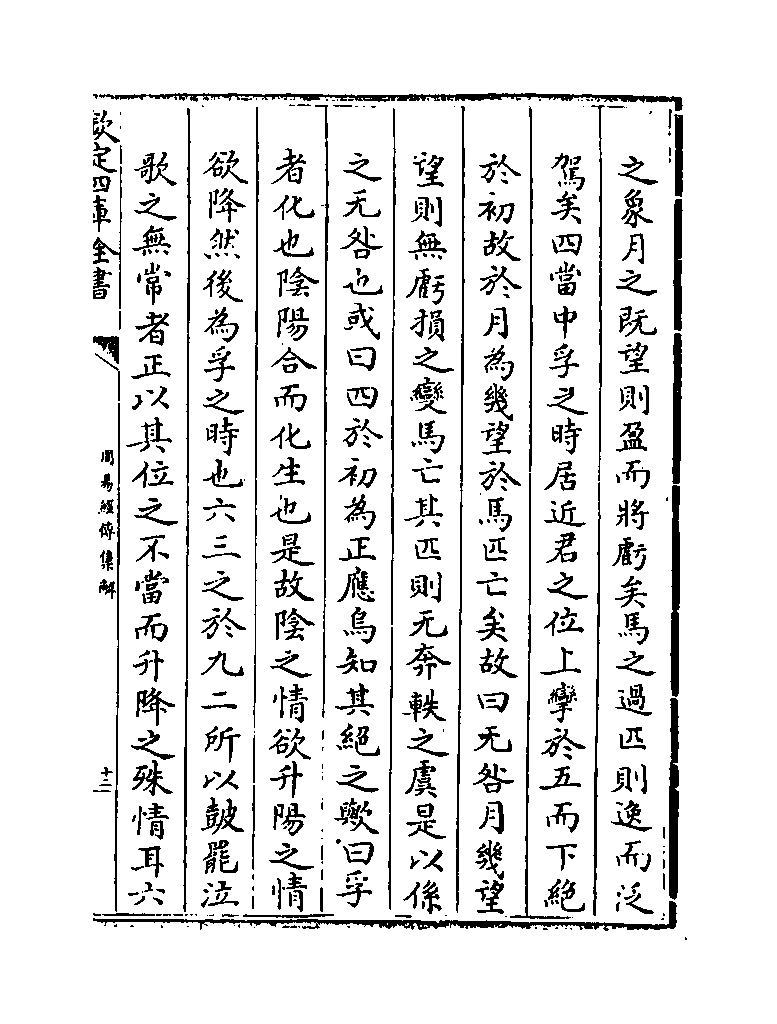 之象月之既望則盈而將虧矣馬之過匹則逸而泛
駕矣四當中孚之時居近君之位上孿於五而下絶
於初故於月為幾望於馬匹亡矣故曰无咎月幾望
望則無虧損之變馬亡其匹則无奔軼之虞是以係
之无咎也或曰四於初為正應烏知其絕之歟曰孚
者化也陰陽合而化生也是故陰之情欲升陽之情
欲降然後為孚之時也六三之於九二所以鼓罷泣
歌之無常者正以其位之不當而升降之殊情耳六
欽定四庫全書
周易經傳集解
十三